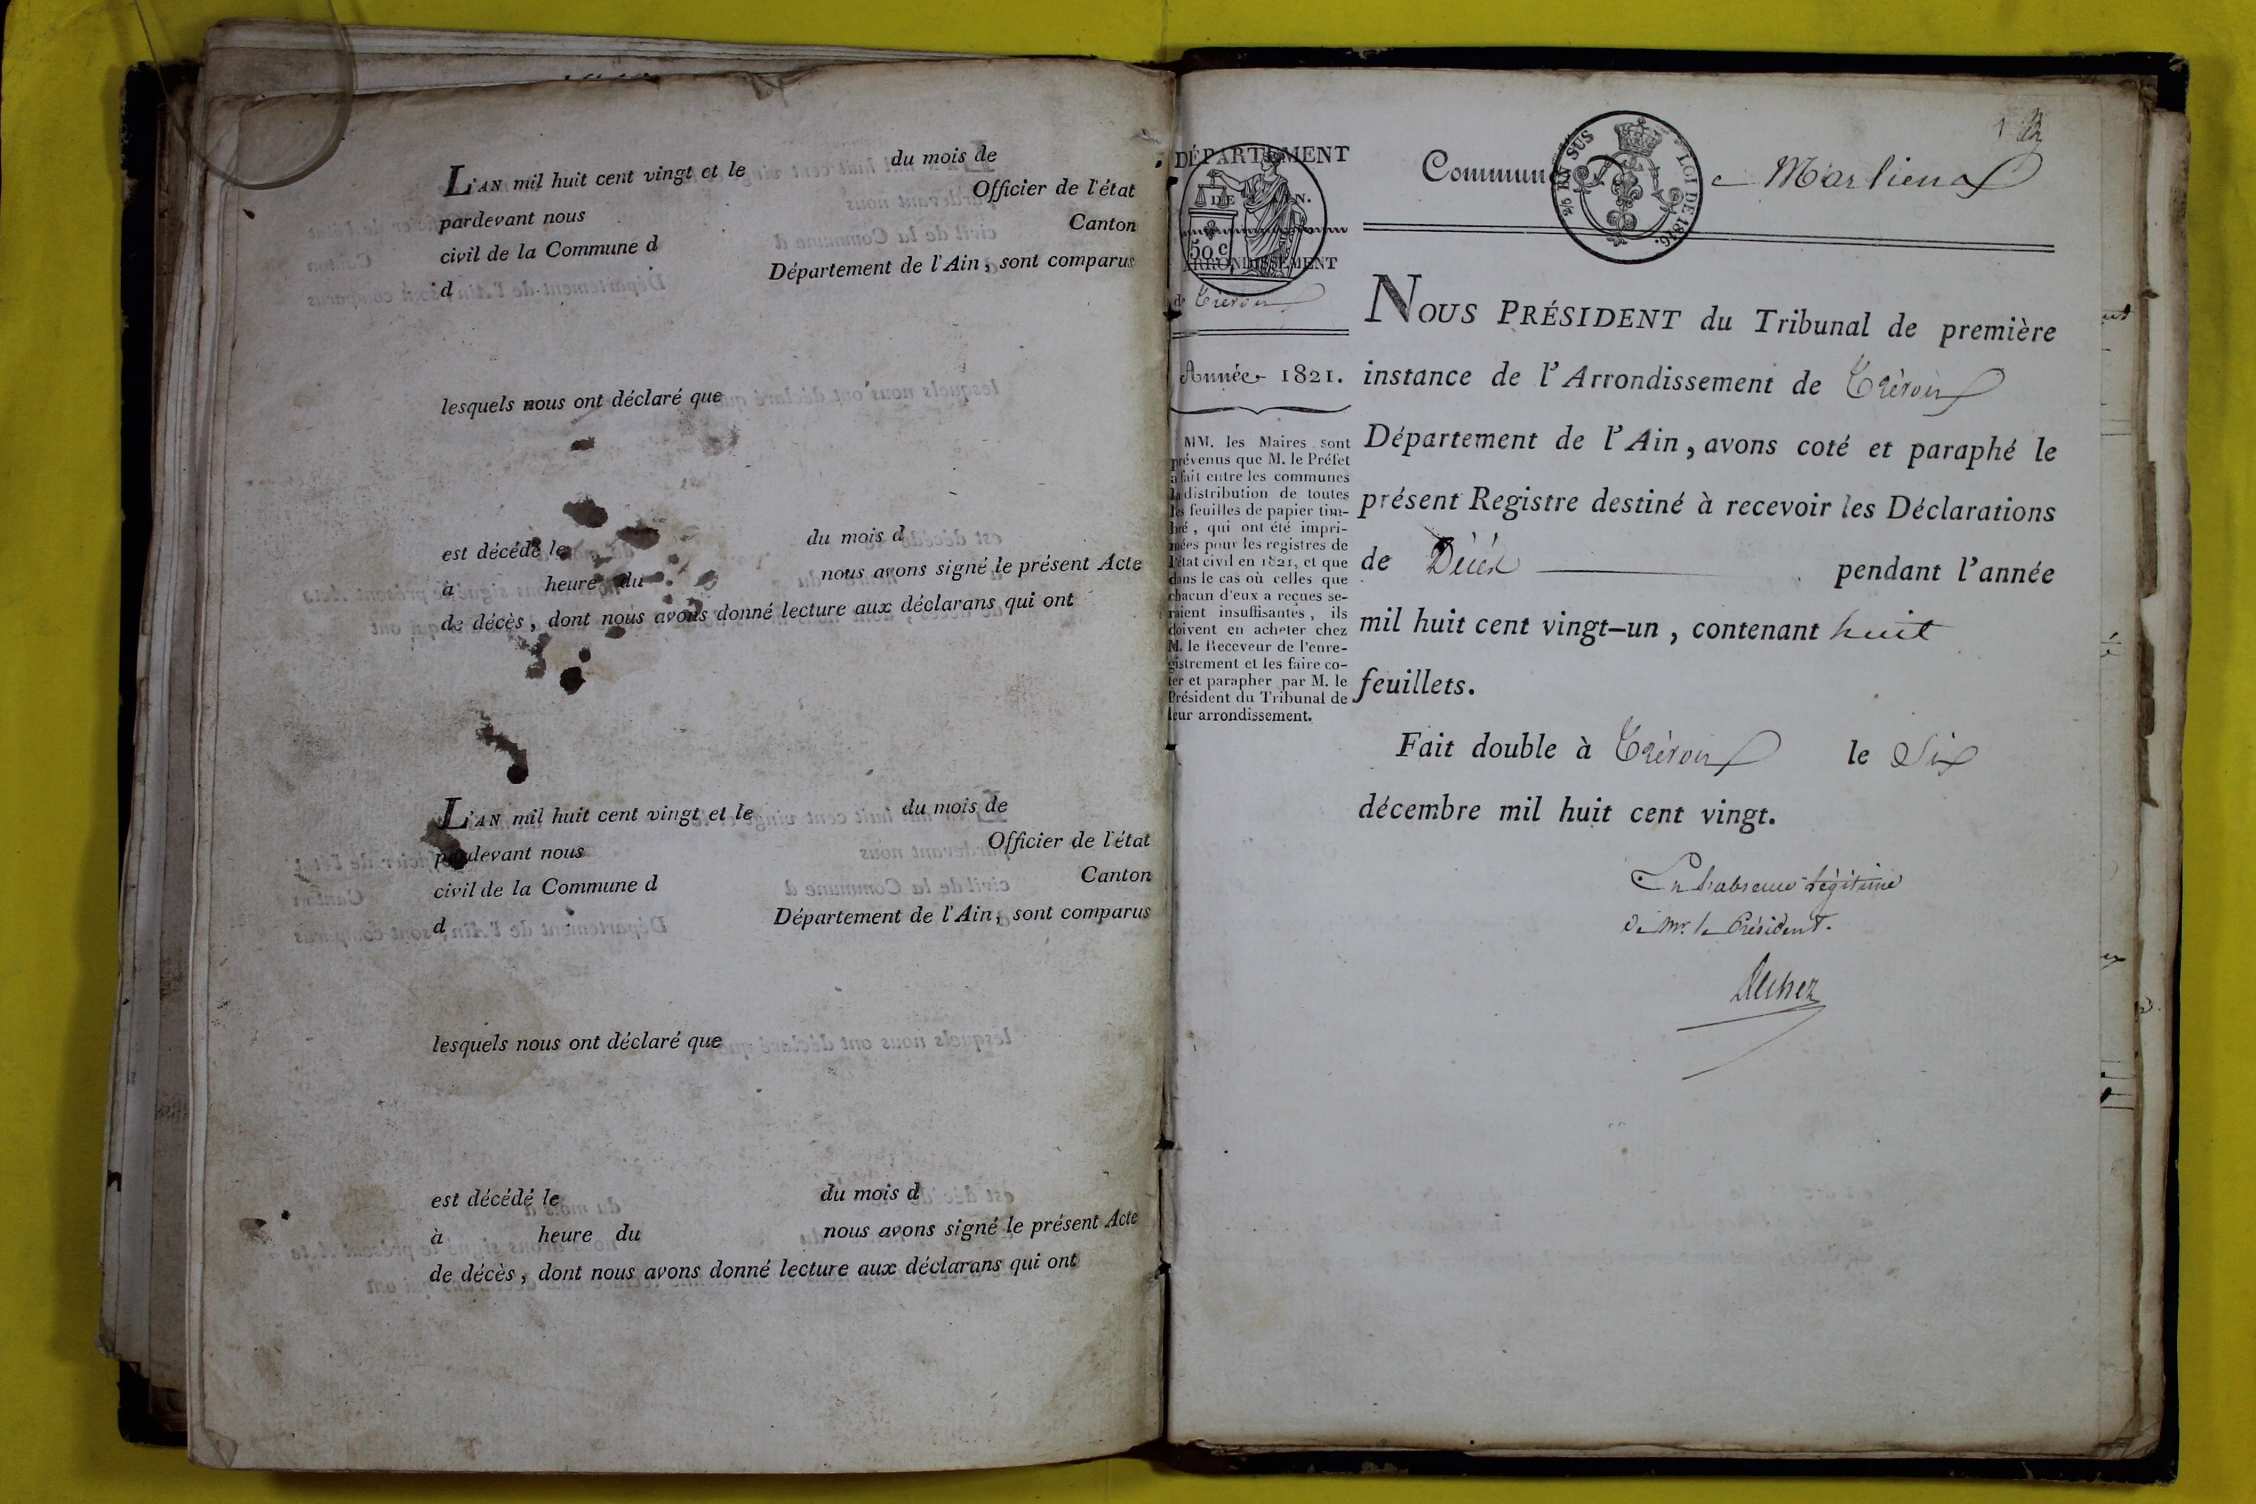 L'AN mil huit cent vingt et le du mois de
pardevant nous Officier de l'état
civil de la Commune d Canton
d Département de l'Ain, sont comparus
lesquels nous ont déclaré que
est décédé le du mois d
à heure du nous avons signé le présent Acte
de décès, dont nous avons donné lecture aux déclarans qui ont
L'AN mil huit cent vingt et le du mois de
pardevant nous Officier de l'état
civil de la Commune d Canton
d Département de l'Ain, sont comparus
lesquels nous ont déclaré que
est décédé le du mois d
à heure du nous avons signé le présent Acte
de décès, dont nous avons donné lecture aux déclarans qui ont
DÉPARTEMENT
DE L'AIN.
50 c
ARRONDISSEMENT
de Trévoux
Année 1821.
MM. les Maires sont
prévenus que M. le Préfet
a fait entre les communes
la distribution de toutes
les feuilles de papier tim-
bré, qui ont été impri-
mées pour les registres de
l'état civil en 1821, et que
dans le cas où celles que
chacun d'eux a reçues se-
raient insuffisantes, ils
doivent en acheter chez
M. le Receveur de l'enre-
gistrement et les faire co-
ter et parapher par M. le
Président du Tribunal de
leur arrondissement.
EN SUS LOI DE 1816.
1
Commune de Marlieux
NOUS PRÉSIDENT du Tribunal de première
instance de l'Arrondissement de Trévoux
Département de l'Ain, avons coté et paraphé le
présent Registre destiné à recevoir les Déclarations
de Décès pendant l'année
mil huit cent vingt-un, contenant huit
feuillets.
Fait double à Trévoux le Six
décembre mil huit cent vingt.
En l'absence légitime
de Mr. le Président.